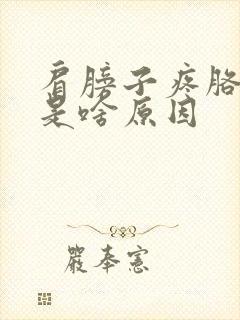 肩膀子疼胳
是啥原因
嚴奉憲